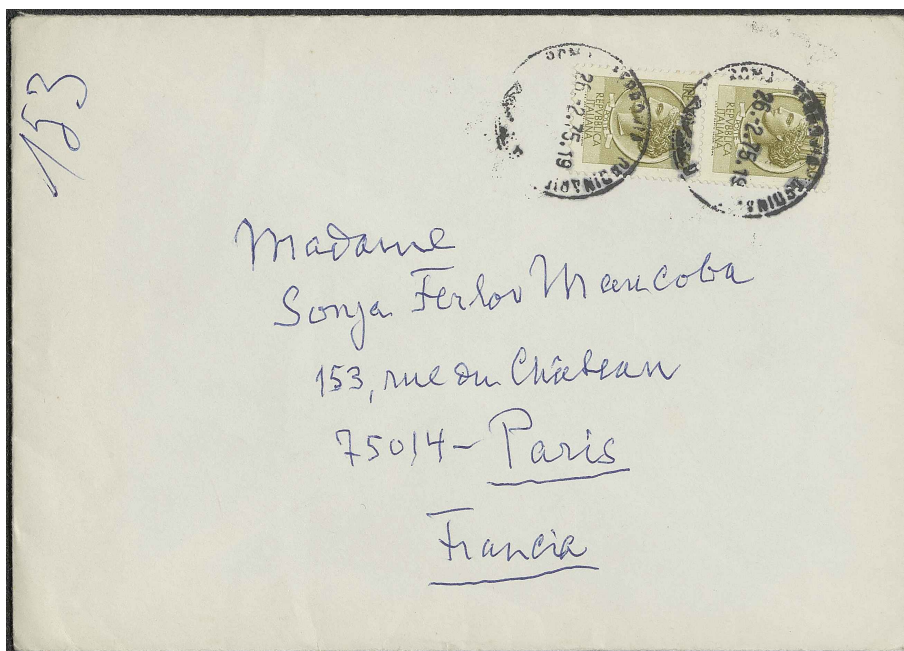 153
26.-2.75.19
26.-2.75.19
REPUBBLICA
ITALIANA
REPUBBLICA
ITALIANA
Madame
Sonja Ferlov Mancoba
153, rue du Château
75014- Paris
Francia